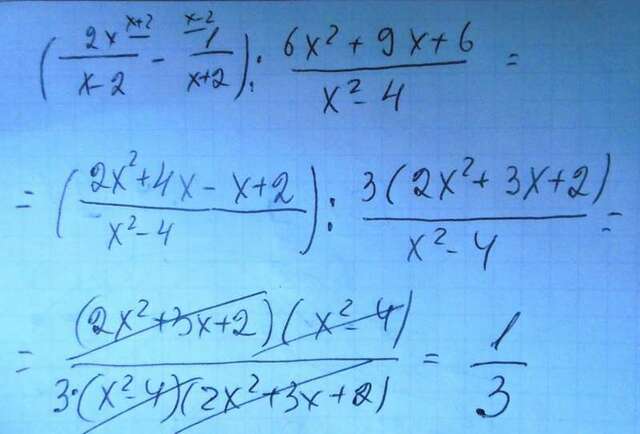 (2x^(x+2)/(x-2) - 1^(x-2)/(x+2)) : (6x²+9x+6)/(x²-4) =
= ((2x²+4x-x+2)/(x²-4)) : 3(2x²+3x+2)/(x²-4) =
= (2x²+3x+2)(x²-4)/(3·(x²-4)(2x²+3x+2)) = 1/3